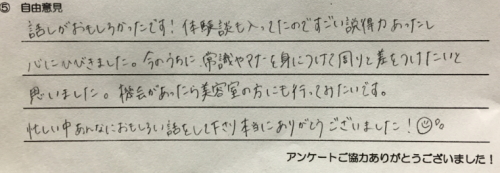 ⑤ 自由意見
話しがおもしろかったです！体験談も入ってたのですごい説得力あったし
心にひびきました。今のうちに、常識やマナーを身につけて周りと差をつけたいと
思いました。機会があったら美容室の方にも行ってみたいです。
忙しい中あんなにおもしろい話をして下さり本当にありがとうございました！
アンケートご協力ありがとうございました！